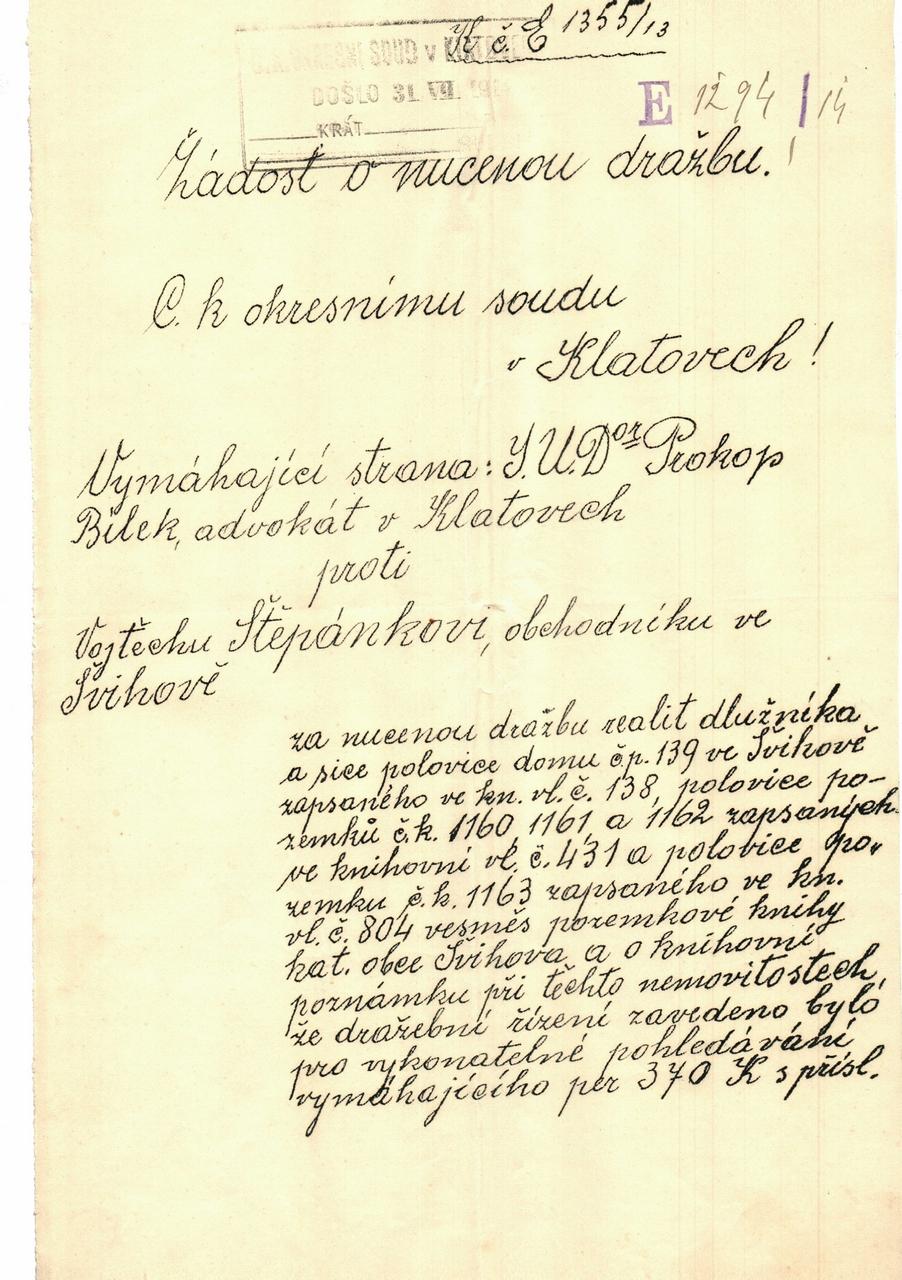 K č. E 1355/13
SOUD v
DOŠLO 31. VII. 191
KRÁT
E 1294/14
Žádost o nucenou dražbu.!
C. k okresnímu soudu
v Klatovech!
Vymáhající strana: J.U.Dor Prokop
Bílek, advokát v Klatovech
proti
Vojtěchu Štěpánkovi, obchodníku ve
Švihově
za nucenou dražbu realit dlužníka
a sice polovice domu čp. 139 ve Švihově
zapsaného ve kn. vl. č. 138, polovice po-
zemků č.k. 1160, 1161, a 1162 zapsaných
ve knihovní vl. č. 431 a polovice po-
zemku č.k. 1163 zapsaného ve kn.
vl. č. 804 vesměs pozemkové knihy
kat. obce Švihova, a o knihovní
poznámku při těchto nemovitostech,
že dražební řízení zavedeno bylo
pro vykonatelné pohledávání
vymáhajícího per 370 K s přísl.